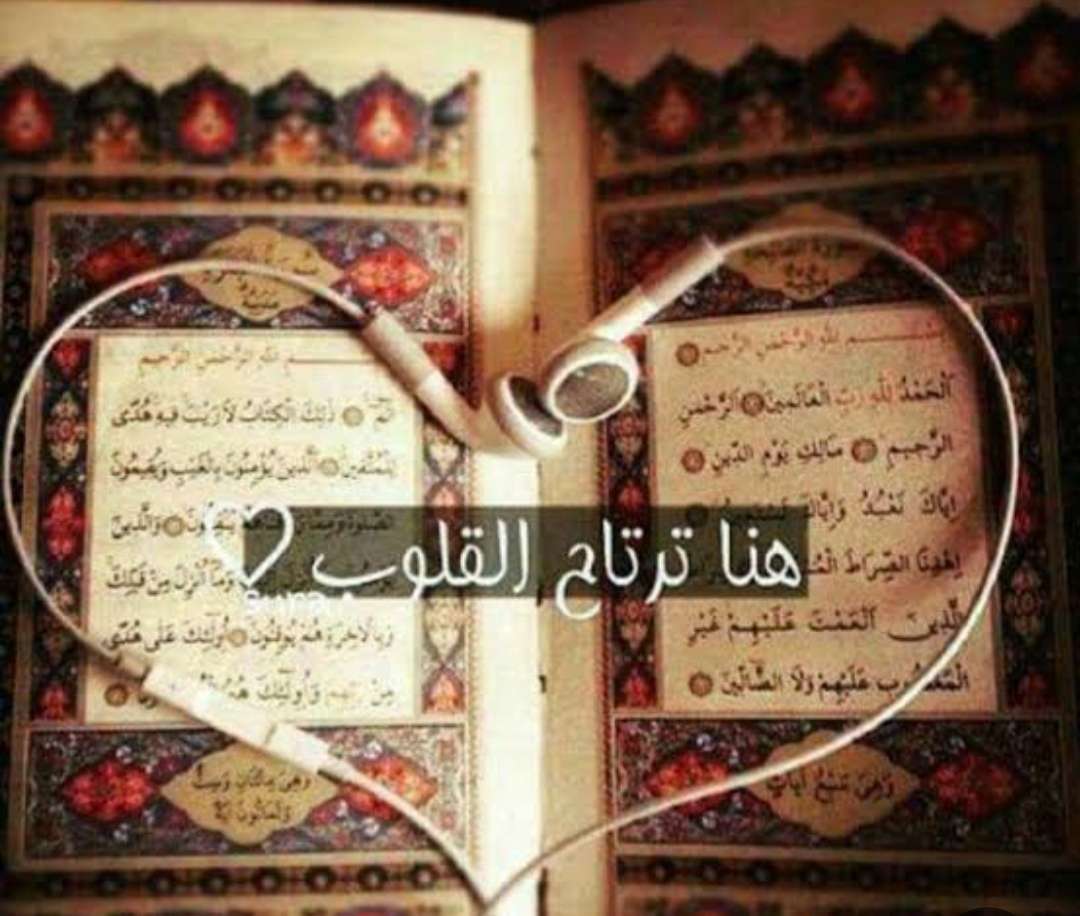 بِسْمِ اللهِ الرَّحْمٰنِ الرَّحِيمِ
اَلْحَمْدُ لِلّٰهِ رَبِّ الْعَالَمِينَ الرَّحْمٰنِ
الرَّحِيمِ مَالِكِ يَوْمِ الدِّينِ
اِيَّاكَ نَعْبُدُ وَاِيَّاكَ
اِهْدِنَا الصِّرَاطَ
الَّذِينَ اَنْعَمْتَ عَلَيْهِمْ غَيْرِ
الْمَغْضُوبِ عَلَيْهِمْ وَلَا الضَّالِّينَ
وَهِيَ سَبْعُ اٰيَاتٍ
اللهِ الرَّحْمٰنِ الرَّحِيمِ
الٓمٓ ذٰلِكَ الْكِتَابُ لَا رَيْبَ فِيهِ هُدًى
لِلْمُتَّقِينَ الَّذِينَ يُؤْمِنُونَ بِالْغَيْبِ وَيُقِيمُونَ
الصَّلٰوةَ يُنْفِقُونَ وَالَّذِينَ
وَمَا اُنْزِلَ مِنْ قَبْلِكَ
وَبِالْاٰخِرَةِ هُمْ يُوقِنُونَ اُولٰٓئِكَ عَلٰى هُدًى
مِنْ رَبِّهِمْ وَاُولٰٓئِكَ هُمُ
هنا ترتاح القلوب